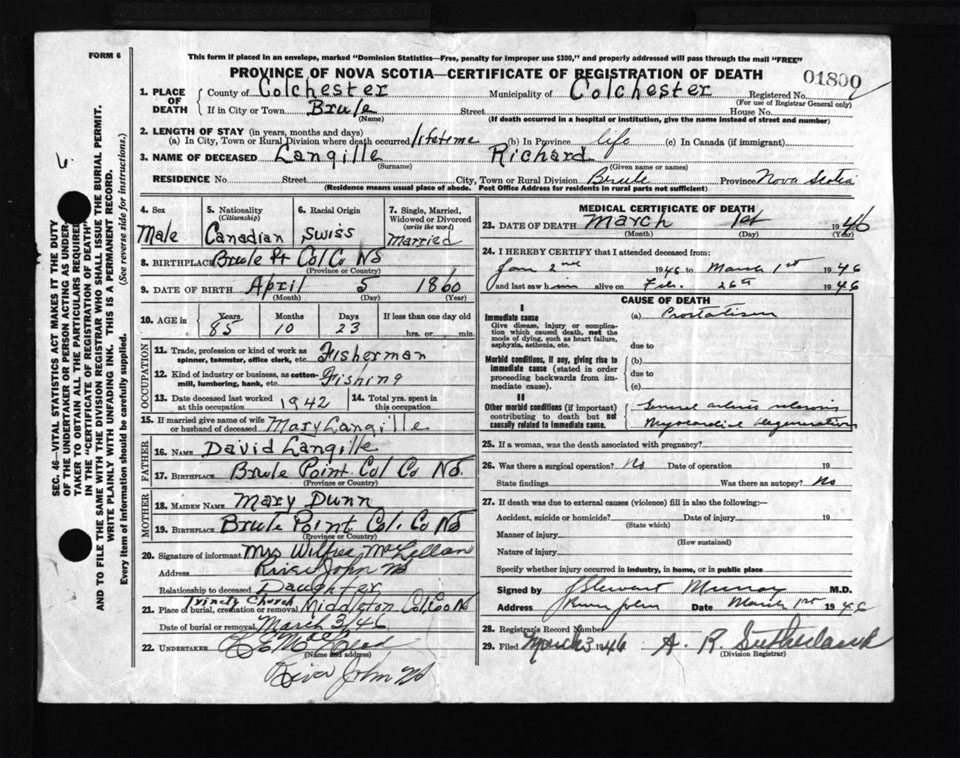 FORM 6
This form if placed in an envelope, marked "Dominion Statistics—Free, penalty for improper use $300," and properly addressed will pass through the mail "FREE"
PROVINCE OF NOVA SCOTIA—CERTIFICATE OF REGISTRATION OF DEATH
01800
1. PLACE OF DEATH
County of Colchester Municipality of Colchester Registered No.
(For use of Registrar General only)
If in City or Town Brule Street House No.
(Name) (If death occurred in a hospital or institution, give the name instead of street and number)
2. LENGTH OF STAY (in years, months and days)
(a) In City, Town or Rural Division where death occurred lifetime (b) In Province life (c) In Canada (if immigrant)
3. NAME OF DECEASED Langille Richard
(Surname) (Given name or names)
RESIDENCE No Street City, Town or Rural Division Brule Province Nova Scotia
(Residence means usual place of abode. Post Office Address for residents in rural parts not sufficient)
4. Sex
Male
5. Nationality
(Citizenship)
Canadian
6. Racial Origin
Swiss
7. Single, Married, Widowed or Divorced
(write the word)
Married
8. BIRTHPLACE Brule Pt Col Co NS
(Province or Country)
9. DATE OF BIRTH April 5 1860
(Month) (Day) (Year)
10. AGE in Years Months Days If less than one day old
85 10 23 hrs. or min.
OCCUPATION
11. Trade, profession or kind of work as spinner, teamster, office clerk, etc. Fisherman
12. Kind of industry or business, as cotton-mill, lumbering, bank, etc. Fishing
13. Date deceased last worked at this occupation 1942 14. Total yrs. spent in this occupation
15. If married give name of wife or husband of deceased Mary Langille
FATHER
16. NAME David Langille
17. BIRTHPLACE Brule Point Col Co NS.
(Province or Country)
MOTHER
18. MAIDEN NAME Mary Dunn
19. BIRTHPLACE Brule Point Col. Co NS
(Province or Country)
20. Signature of informant Mrs Wilfred McLellan
Address River John NS
Relationship to deceased Daughter
21. Place of burial, cremation or removal Trinity Church Middleton Col Co NS
Date of burial or removal March 3/46
22. UNDERTAKER
(Name and address)
River John NS
MEDICAL CERTIFICATE OF DEATH
23. DATE OF DEATH March 1st 1946
(Month) (Day) (Year)
24. I HEREBY CERTIFY that I attended deceased from:
Jan 2nd 1946 to March 1st 1946
and last saw him alive on Feb. 26th 1946
CAUSE OF DEATH
I
Immediate cause
Give disease, injury or complication which caused death, not the mode of dying, such as heart failure, asphyxia, asthenia, etc.
(a) Prostatism
due to
Morbid conditions, if any, giving rise to immediate cause (stated in order proceeding backwards from immediate cause).
(b)
due to
(c)
II
Other morbid conditions (if important) contributing to death but not causally related to immediate cause.
General arterio sclerosis
Myocardial degeneration
25. If a woman, was the death associated with pregnancy?
26. Was there a surgical operation? No Date of operation 19
State findings Was there an autopsy? No
27. If death was due to external causes (violence) fill in also the following:—
Accident, suicide or homicide? Date of injury 19
(State which)
Manner of injury
(How sustained)
Nature of injury
Specify whether injury occurred in industry, in home, or in public place
Signed by J Stewart Murray M.D.
Address River John Date March 1st 1946
28. Registrar's Record Number
29. Filed March 3 1946 A. R. Sutherland
(Division Registrar)
SEC. 46—VITAL STATISTICS ACT MAKES IT THE DUTY OF THE UNDERTAKER OR PERSON ACTING AS UNDERTAKER TO OBTAIN ALL THE PARTICULARS REQUIRED IN THE "CERTIFICATE OF REGISTRATION OF DEATH" AND TO FILE THE SAME WITH THE DIVISION REGISTRAR WHO SHALL ISSUE THE BURIAL PERMIT.
WRITE PLAINLY WITH UNFADING INK. THIS IS A PERMANENT RECORD.
Every item of information should be carefully supplied. (See reverse side for instructions.)